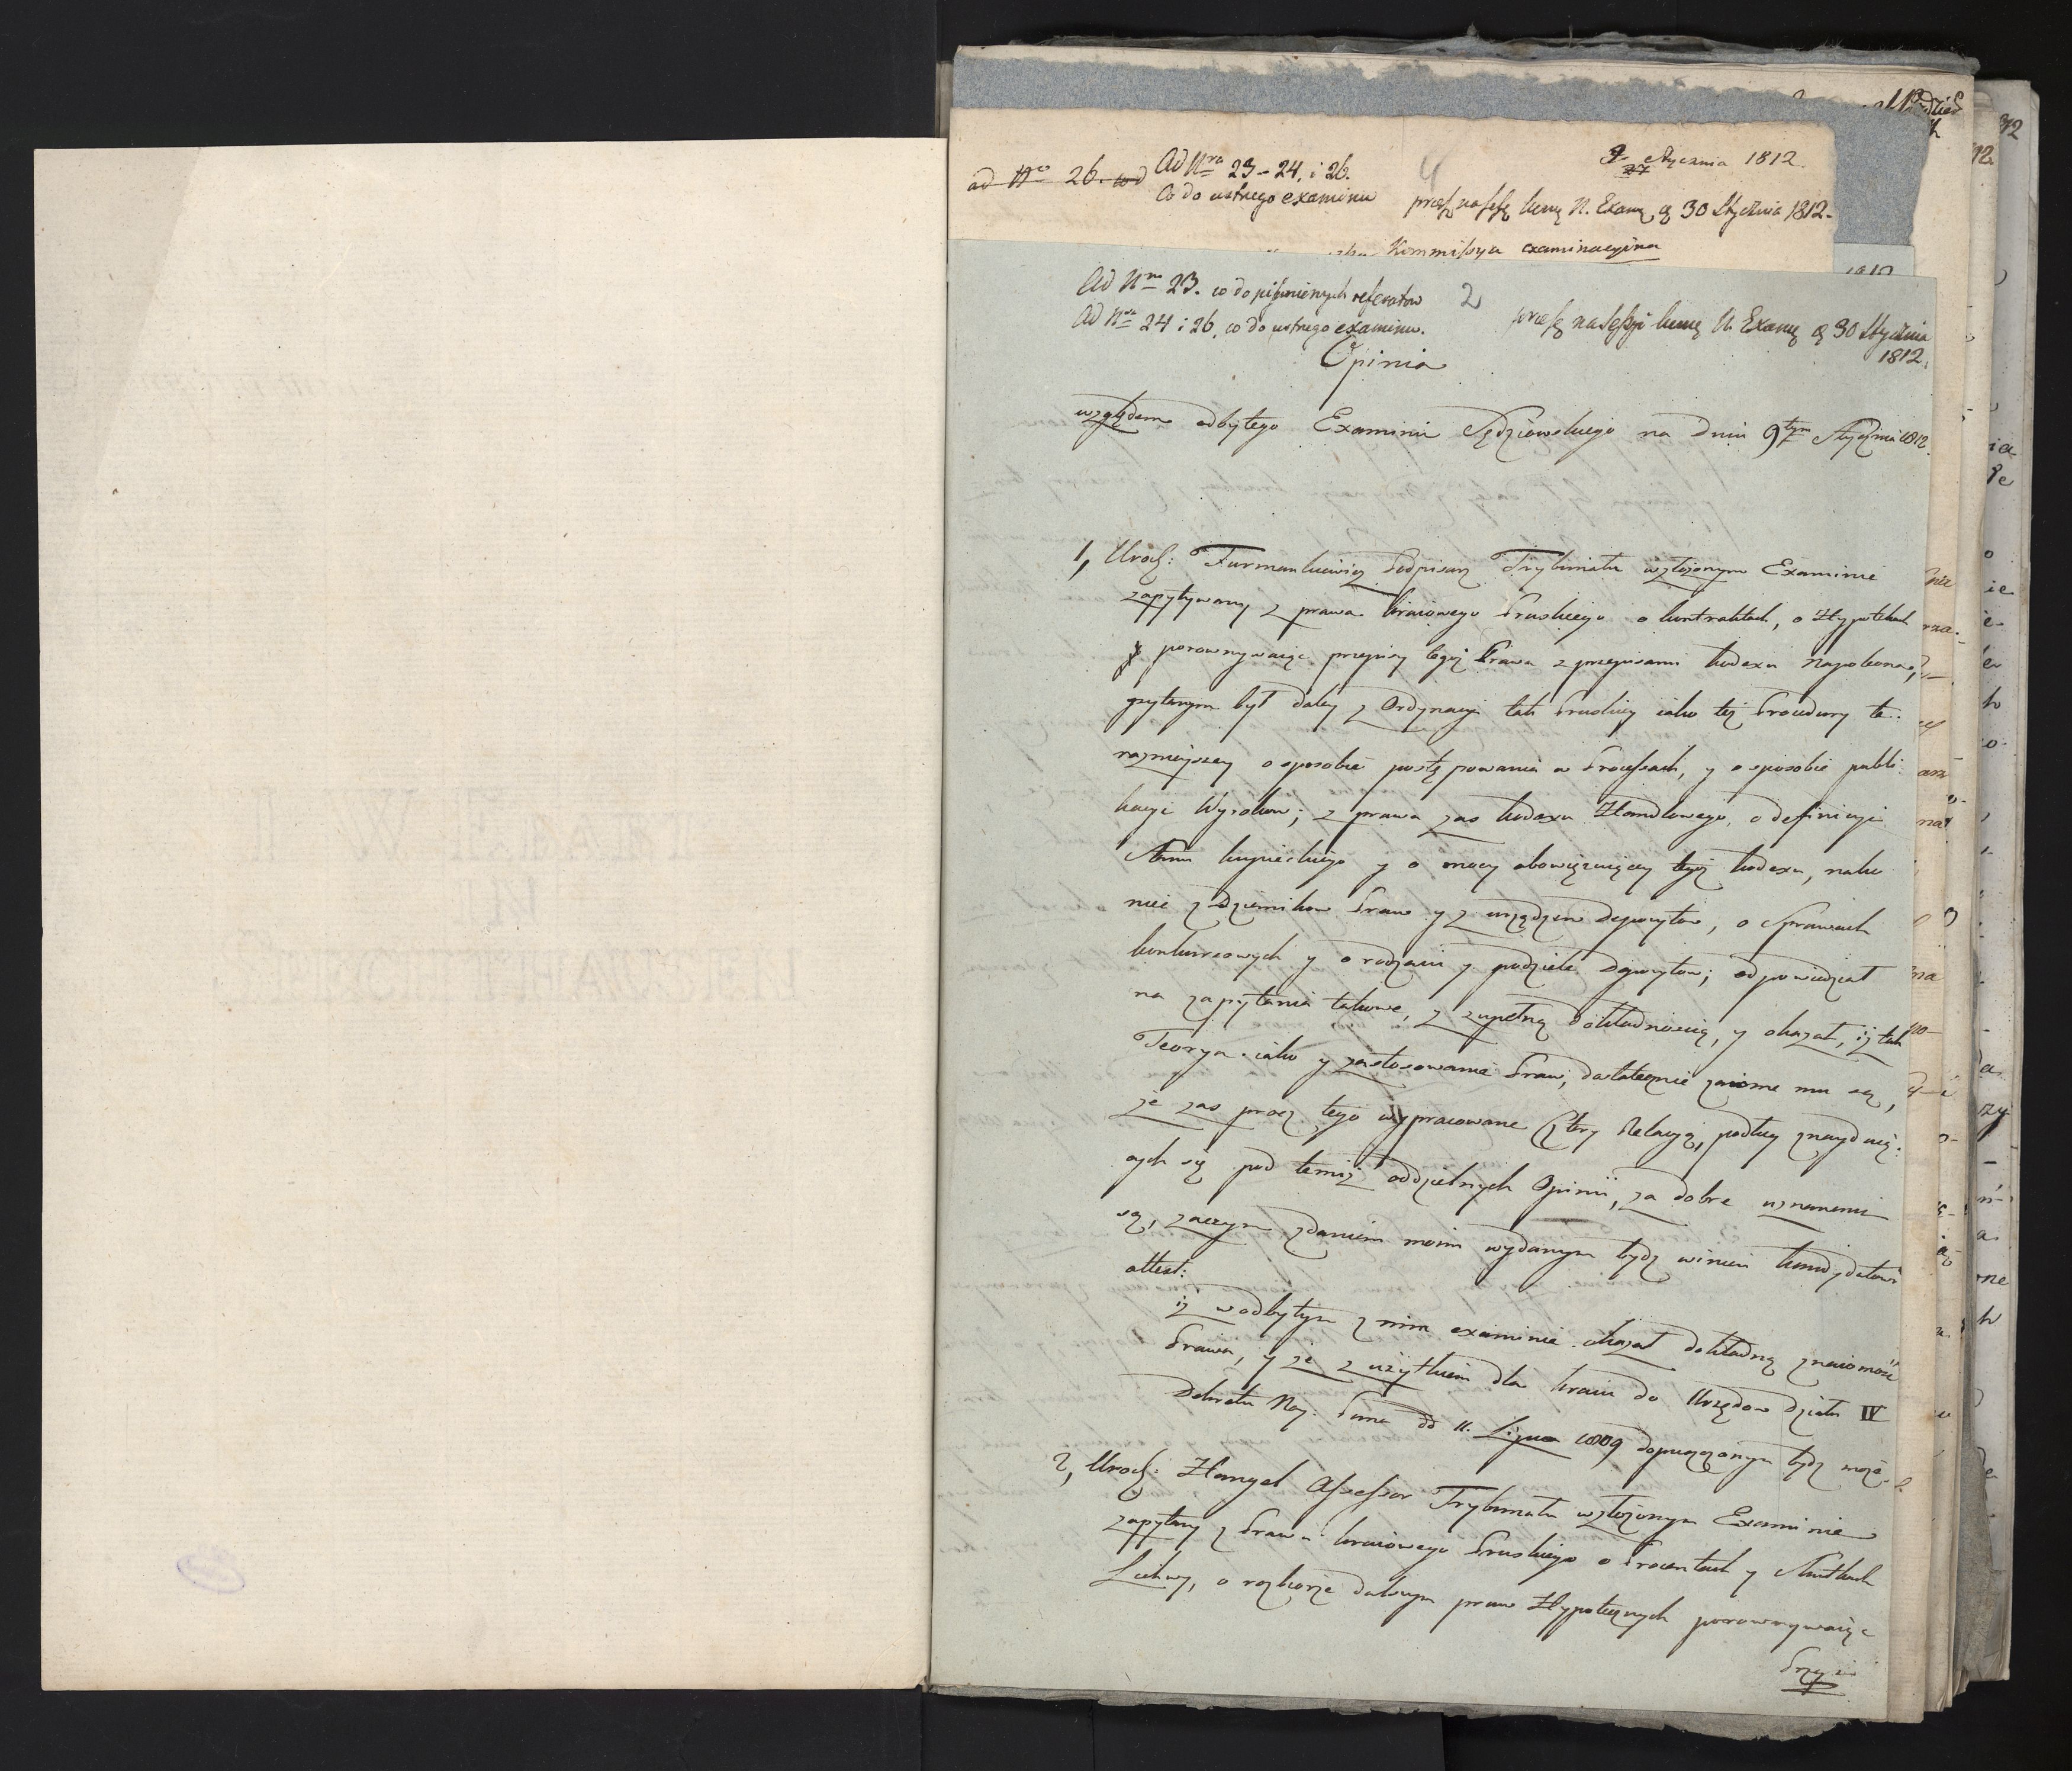 ad Nro 26. co d
Ad Nra 23-24. i 26.
Co do ustnego examinu
4
9 Stycznia 1812.
27
30 Stycznia 1812.
Kommissya examinacyjna
Ad Nro 23. co do piśmiennych referatow
2
Ad Nra 24 i 26, co do ustnego examinu.
30 Stycznia
1812.
Opinia
względem odbytego Examinu Sędziowskiego na dniu 9tym Stycznia 1812.
1, Urodz: Furmankiewicz Podpisarz Trybunału w złożonym Examinie
zapytywany z prawa kraiowego Pruskiego o kontraktach, o Hypotekach
y porownywaiąc przepisy tegoż Prawa z przepisami kodexu Napoleona,
pytanym był daley z Ordynacyi tak Pruskiey iako też Procedury te-
raznieyszey o sposobie postępowania w Processach, y o sposobie publi-
kacyi Wyrokow; z prawa zas kodexu Handlowego, o definicyi
Stanu kupieckiego y o mocy obowięzuiącey tegoż kodexu, nako
niec z Dziennikow Praw y z urządzeń depozytow, o Sprawach
konkursowych y o rodzaiu y podziele Depozytow; odpowiedział
na zapytania takowe, z zupełną dokładnością, y okazał, iż tak
Teorya iako y zastosowanie Praw, dostatecznie znaiome mu są,
że zas procz tego wypracowane cztery Relacye, podług znayduią-
cych się pod temiż oddzielnych Opinii, za dobre uznanemi
są, zaczym zdaniem moim wydanym bydz winien kandydatowi
attest:
iż w odbytym z nim examinie okazał dokładną znaiomość
Prawa, y że z użytkiem dla kraiu do Urzędow działu IV
Dekretu Nay: Pana dd 11. Lipca 1809 dopuszczonym bydz może.
2, Urodz: Hanyel Assessor Trybunału w złożonym Examinie
zapytany z Prawa kraiowego Pruskiego o Procentach y Skutkach
Lichwy, o rozbiorze dalszym praw Hypotecznych porownywaiąc